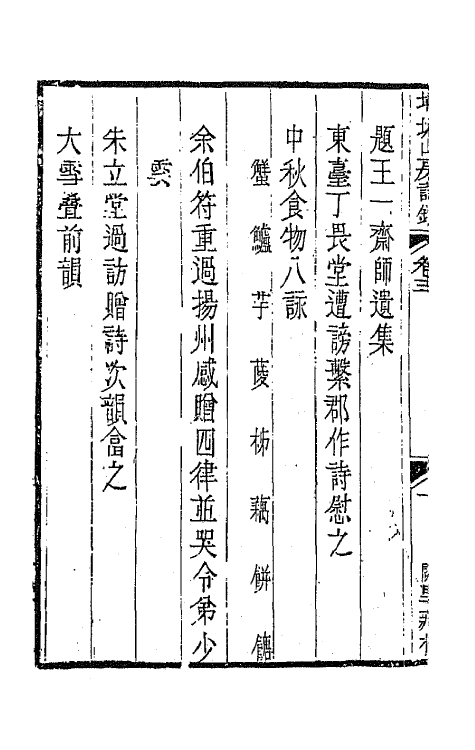 卷三
題王一齋師遺集
東臺丁畏堂遭謗繫郡作詩慰之
中秋食物八詠
蟹 鱸 芋 菱 柹 藕 餅 餹
余伯符重過揚州感贈四律並哭令弟少
雲
朱立堂過訪贈詩次韻畣之
大雪疊前韻